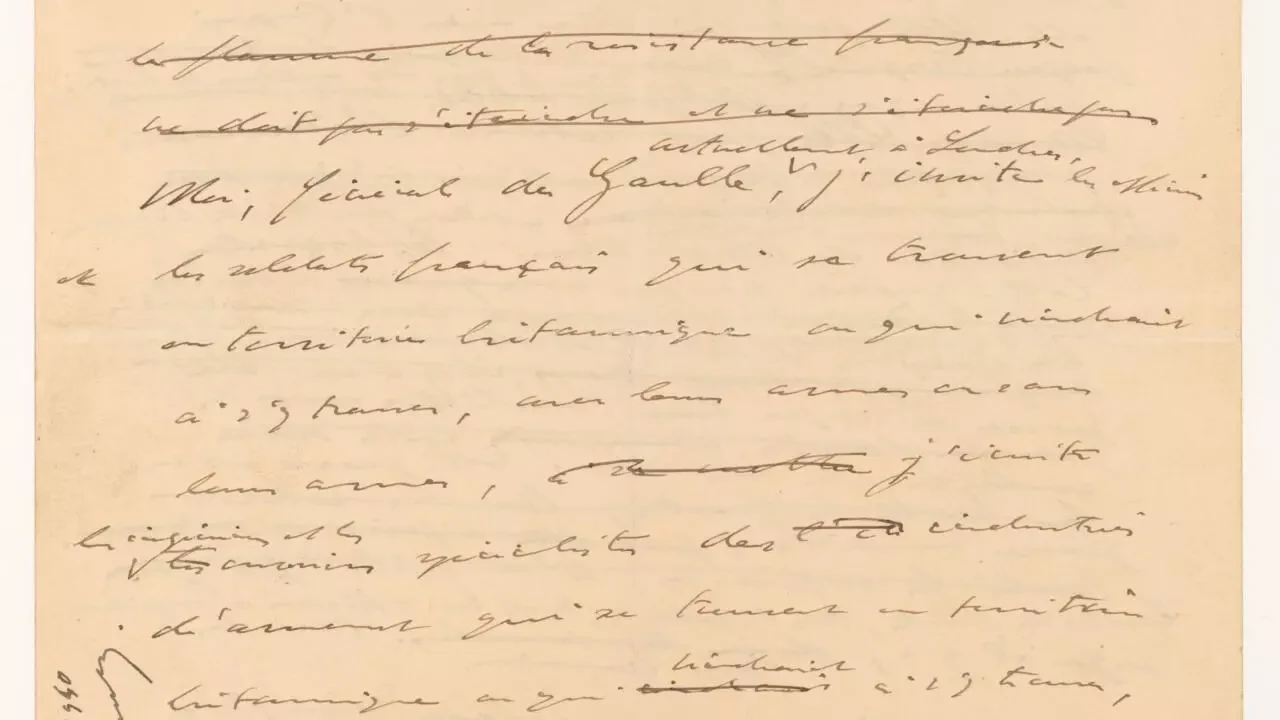 la flamme de la résistance française
ne doit pas s'éteindre et ne s'éteindra pas
actuellement à Londres,
Moi, Général de Gaulle, j'invite les officiers
et les soldats français qui se trouvent
en territoire britannique ou qui viendraient
à s'y trouver, avec leurs armes ou sans
leurs armes, à se mettre j'invite
les ingénieurs et les
les ouvriers spécialistes des industries
d'armement qui se trouvent en territoire
viendraient
britannique ou qui à s'y trouver,